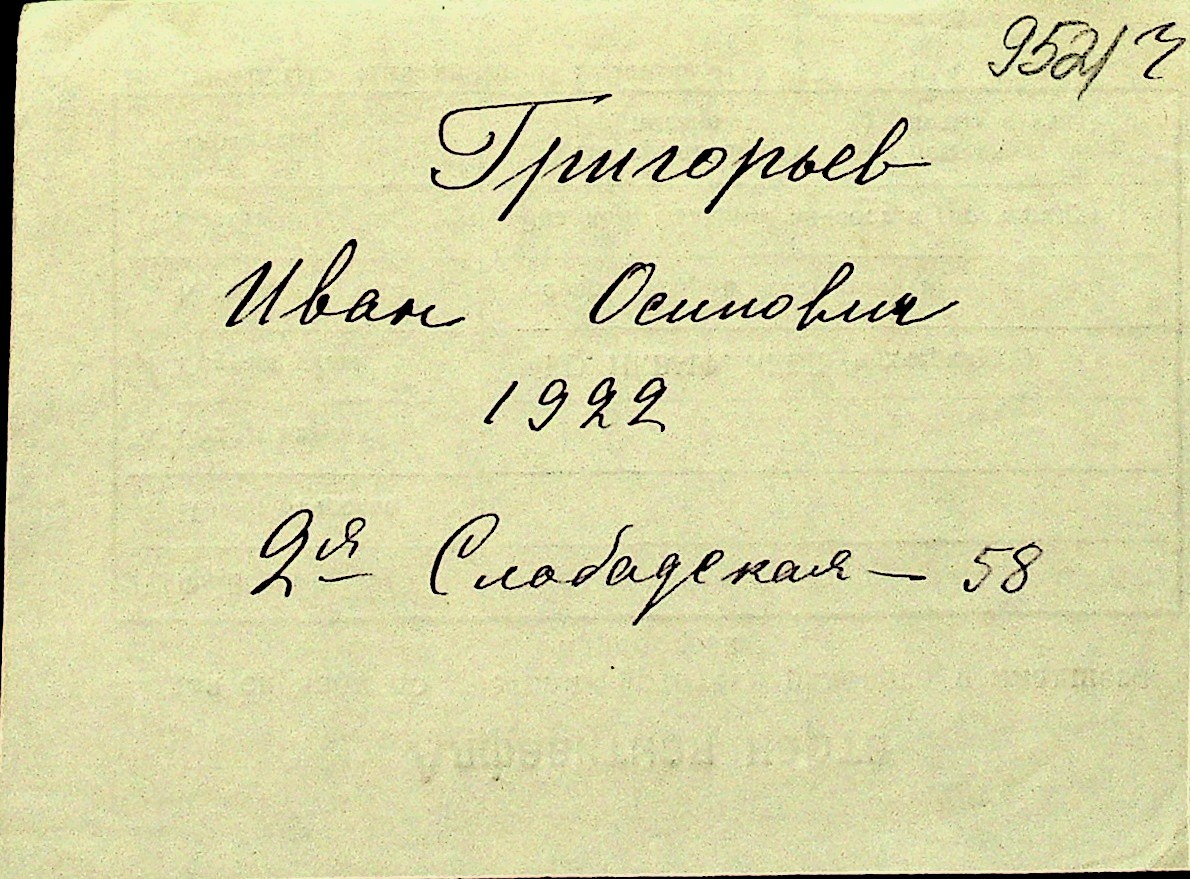 9521
Григорьев
Иван Осипович
1922
2я Слободская — 58